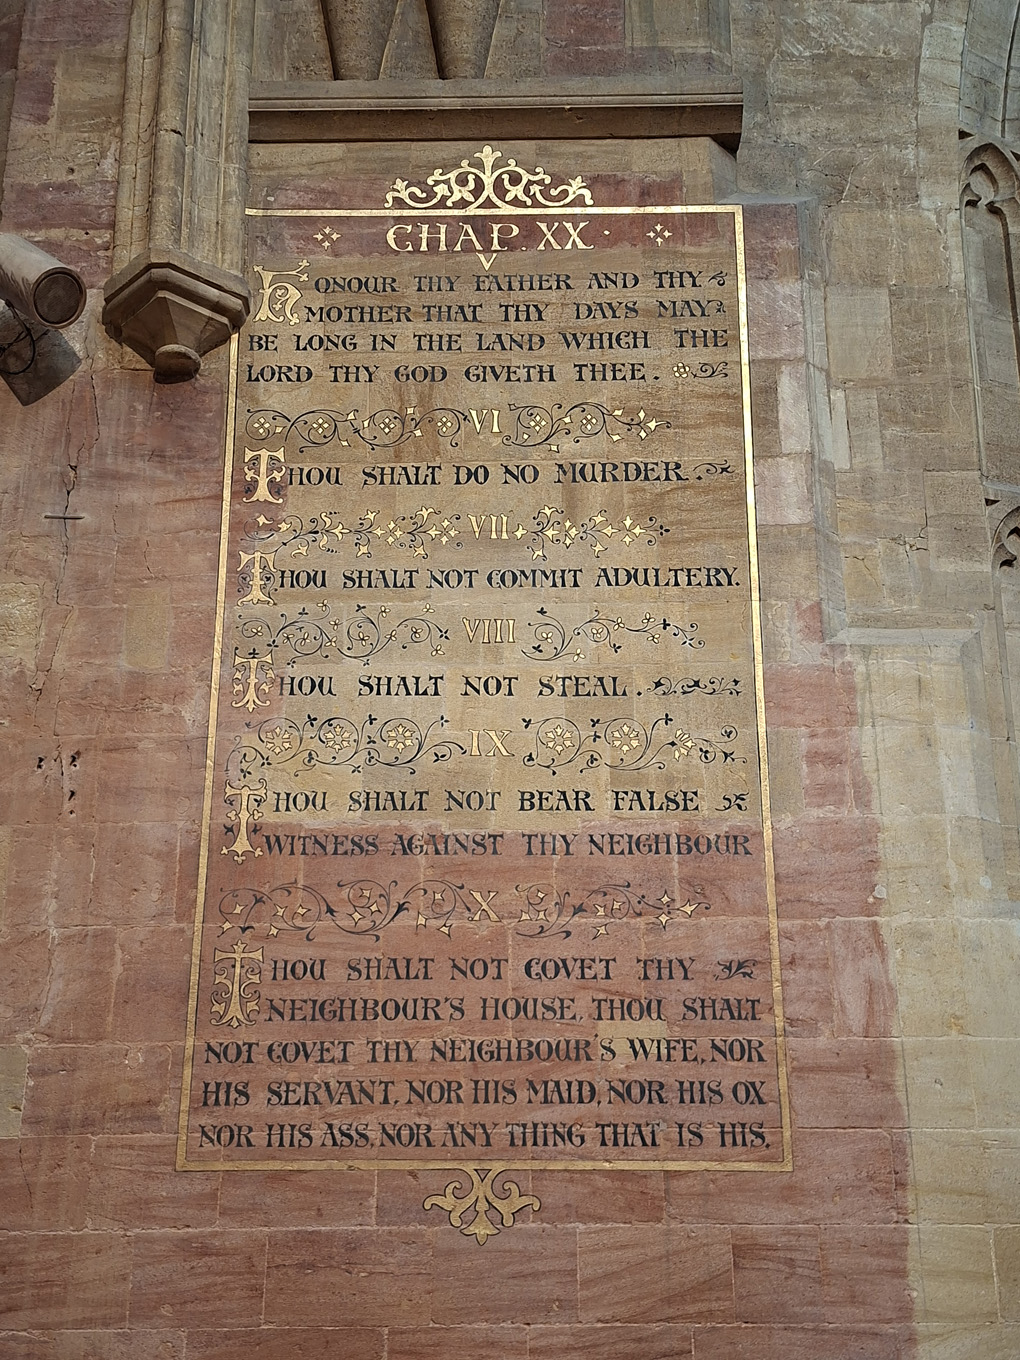 CHAP. XX ·
V
HONOUR THY FATHER AND THY
MOTHER THAT THY DAYS MAY
BE LONG IN THE LAND WHICH THE
LORD THY GOD GIVETH THEE.
VI
THOU SHALT DO NO MURDER.
VII
THOU SHALT NOT COMMIT ADULTERY.
VIII
THOU SHALT NOT STEAL.
IX
THOU SHALT NOT BEAR FALSE
WITNESS AGAINST THY NEIGHBOUR
X
THOU SHALT NOT COVET THY
NEIGHBOUR'S HOUSE, THOU SHALT
NOT COVET THY NEIGHBOUR'S WIFE, NOR
HIS SERVANT, NOR HIS MAID, NOR HIS OX
NOR HIS ASS, NOR ANY THING THAT IS HIS.